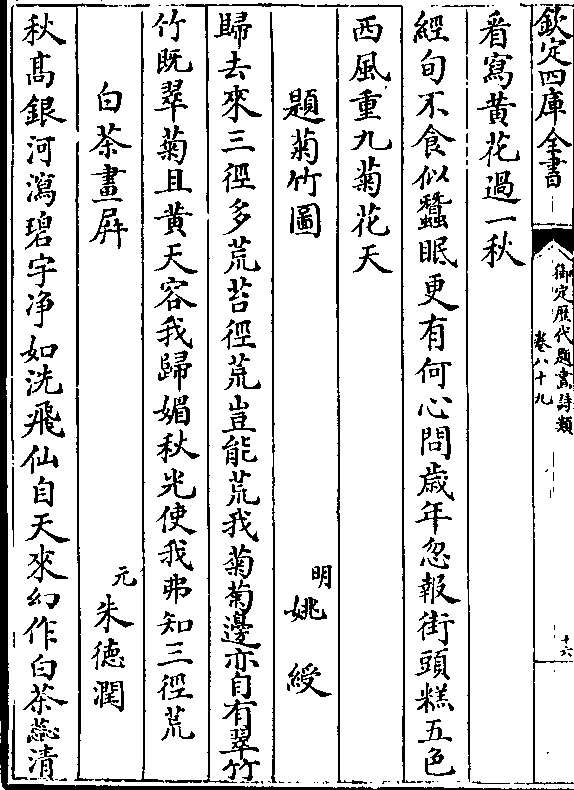 欽定四庫全書
御定歷代題畫詩類
卷八十九
十六
看寫黄花過一秋
經旬不食似蠶眠更有何心問歲年忽報街頭糕五色
西風重九菊花天
題菊竹圖
明 姚綬
歸去來三徑多荒苔徑荒豈能荒我菊菊邊亦自有翠竹
竹既翠菊且黄天容我歸媚秋光使我弗知三徑荒
白茶畫屏
元 朱德潤
秋髙銀河瀉碧宇净如洗飛仙自天來幻作白茶蕊清